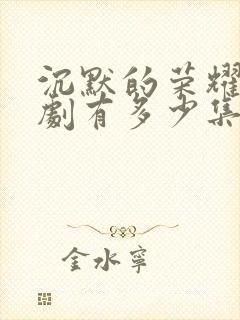 沉默的荣耀
劇有多少集
金水寧